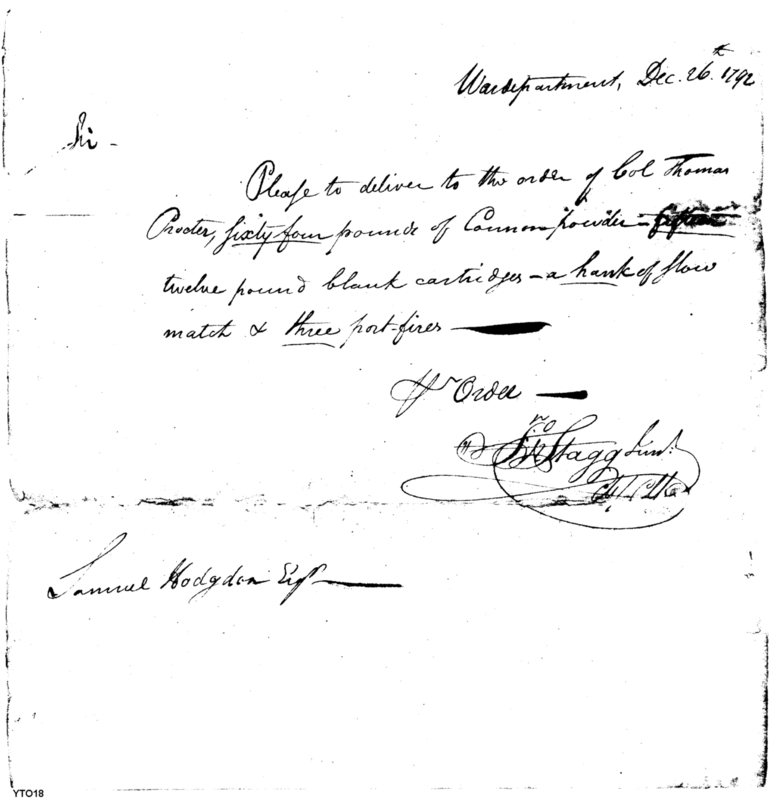 War department, Dec. 26th. 1792
Sir -
Please to deliver to the order of Col Thomas
Procter, sixty four pounds of Cannon powder - fifteen
twelve pound blank cartridges - a hank of slow
match & three port-fires
Pr Order
Jno Stagg Junr.
Samuel Hodgdon Esqr
YTO18